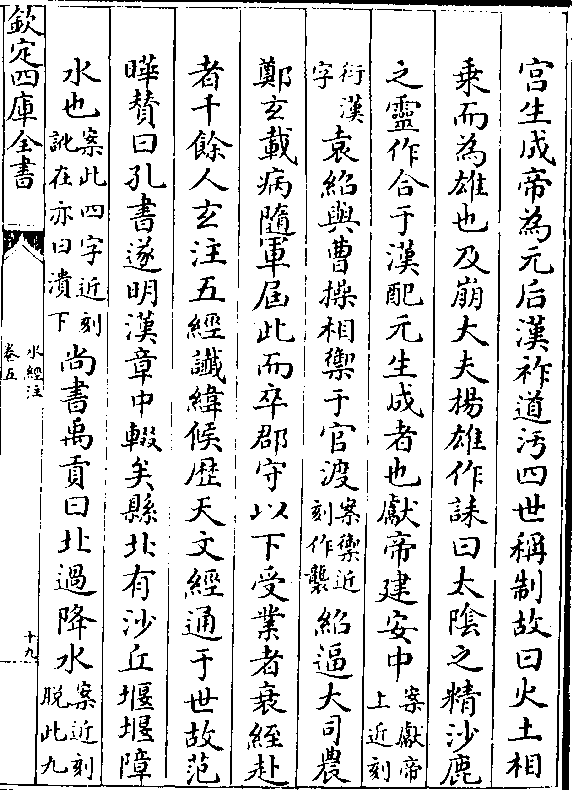 宫生成帝為元后漢祚道汚四世稱制故曰火土相
乗而為雄也及崩大夫楊雄作誄曰太陰之精沙鹿
之靈作合于漢配元生成者也獻帝建安中案獻帝上近刻
衍漢字袁紹與曹操相禦于官渡案禦近刻作襲紹逼大司農
鄭玄載病隨軍屆此而卒郡守以下受業者衰絰赴
者千餘人玄注五經讖緯候歴天文經通于世故范
曄賛曰孔書遂明漢章中輟矣縣北有沙丘堰堰障
水也案此四字近刻訛在亦曰潰下尚書禹貢曰北過降水案近刻脱此九
欽定四庫全書
水經注
卷五
十九